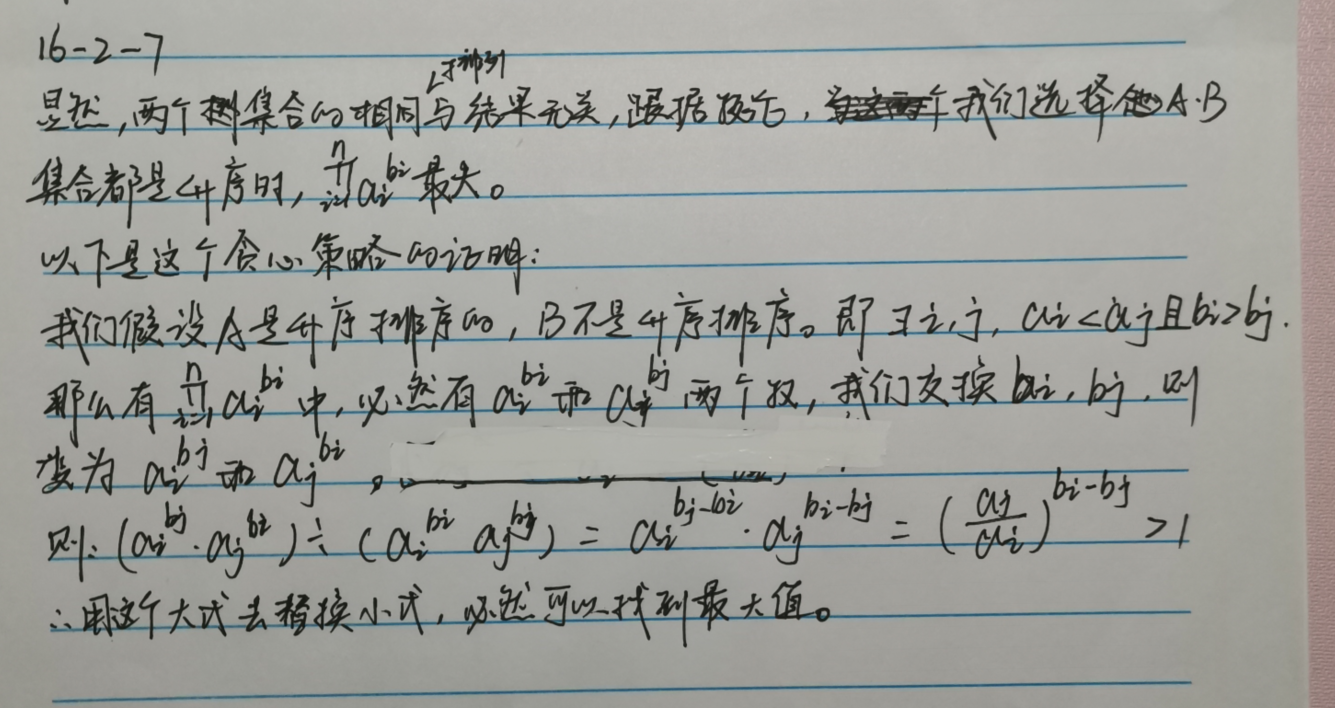 16-2-7
显然,两个集合的相同排列与结果无关,根据贪心,我们选择A.B
集合都是升序时, ∏_{i=1}^{n} a_i^{b_i} 最大。
以下是这个贪心策略的证明:
我们假设A是升序排序的, B不是升序排序。即 ∃i,j, a_i<a_j且b_i>b_j.
那么有 ∏_{i=1}^{n} a_i^{b_i} 中,必然有 a_i^{b_i} 和 a_j^{b_j} 两个数,我们交换b_i,b_j.则
变为 a_i^{b_j} 和 a_j^{b_i} 。
则: (a_i^{b_j}·a_j^{b_i})÷(a_i^{b_i} a_j^{b_j}) = a_i^{b_j-b_i}·a_j^{b_i-b_j} = (a_j/a_i)^{b_i-b_j} >1
∴用这个大式去替换小式,必然可以找到最大值。